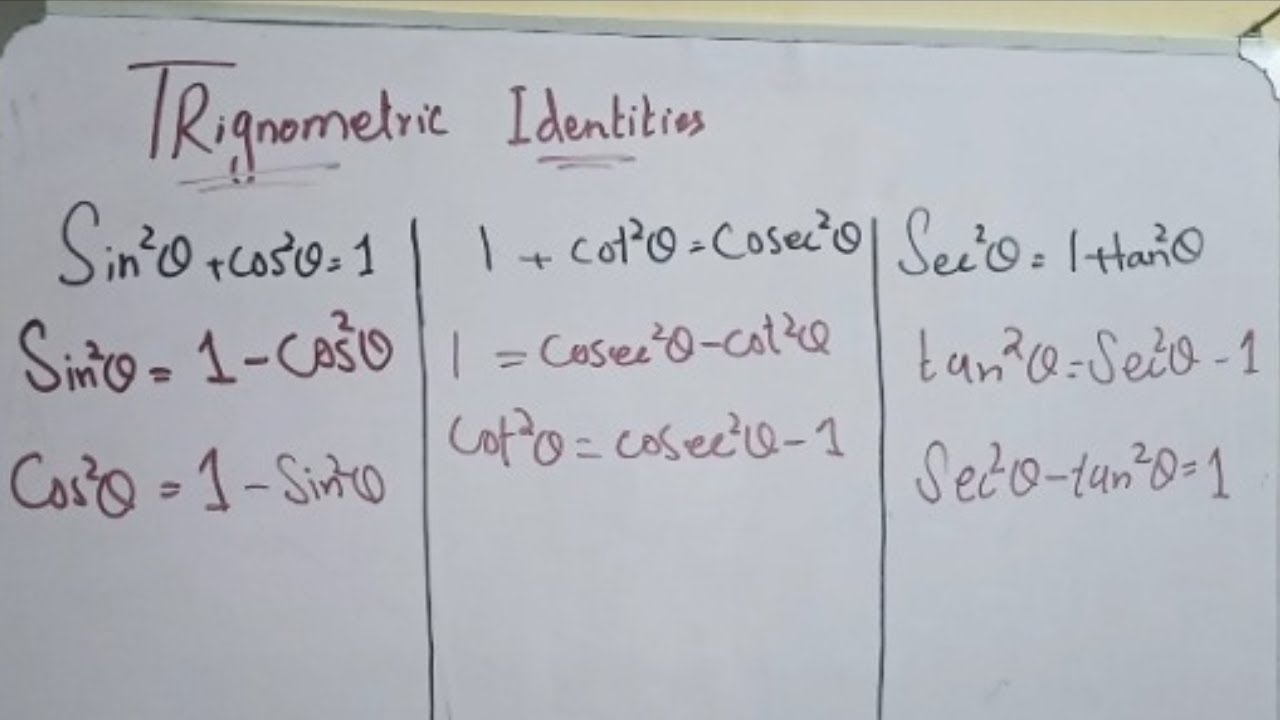 TRignometric Identities
Sin²θ + cos²θ = 1
Sin²θ = 1 - Cos²θ
Cos²θ = 1 - Sin²θ
1 + cot²θ = Cosec²θ
1 = Cosec²θ - cot²θ
Cot²θ = cosec²θ - 1
Sec²θ = 1 + tan²θ
tan²θ = Sec²θ - 1
Sec²θ - tan²θ = 1